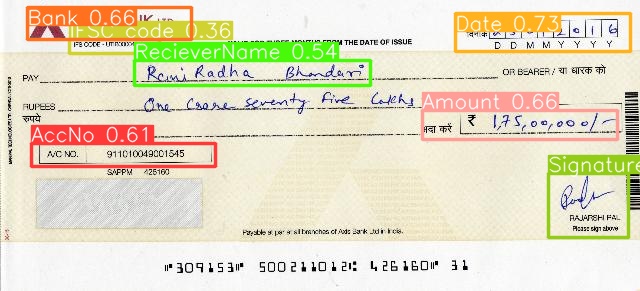 Bank 0.66
IFSC code 0.36
Date 0.73
IFS CODE - UTIB0000
FROM THE DATE OF ISSUE
2016
D D M M Y Y Y Y
RecieverName 0.54
PAY Rani Radha Bhandari OR BEARER / या धारक को
RUPEES रुपये One Crore Seventy Five Lakhs
Amount 0.66
अदा करें ₹ 1,75,00,000/-
AccNo 0.61
A/C NO. 911010049001545
SAPPM 426160
Signature
RAJARSHI PAL
Please sign above
Payable at par at all branches of Axis Bank Ltd in India.
⑈309153⑈ 500211012⑆ 426160⑈ 31